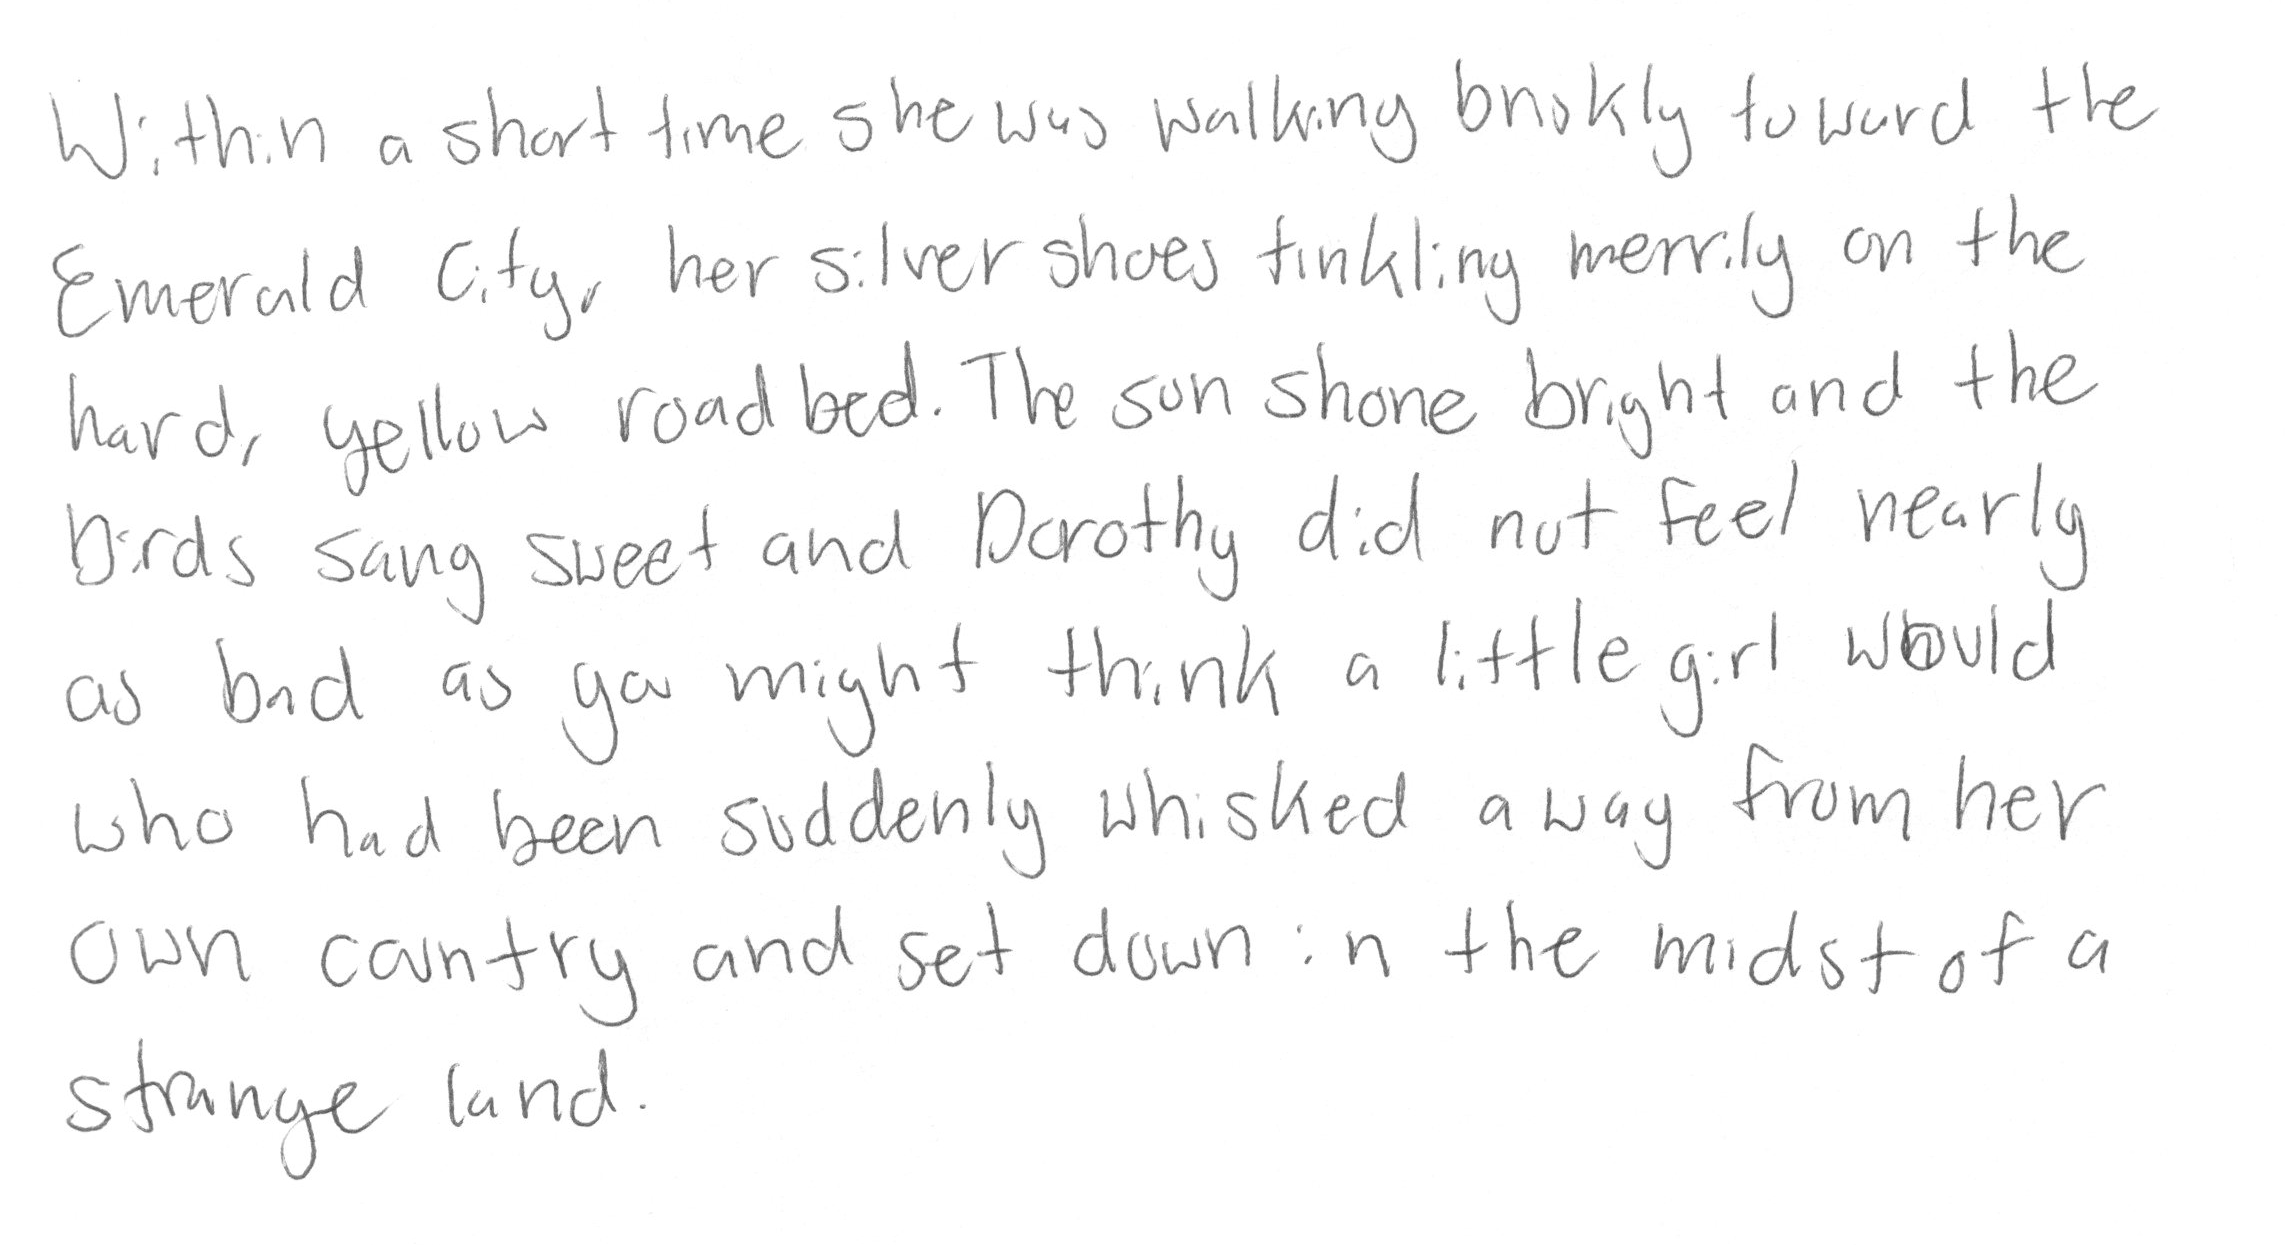 Within a short time she was walking briskly toward the
Emerald City, her silver shoes tinkling merrily on the
hard, yellow road bed. The sun shone bright and the
birds sang sweet and Dorothy did not feel nearly
as bad as you might think a little girl would
who had been suddenly whisked away from her
own country and set down in the midst of a
strange land.